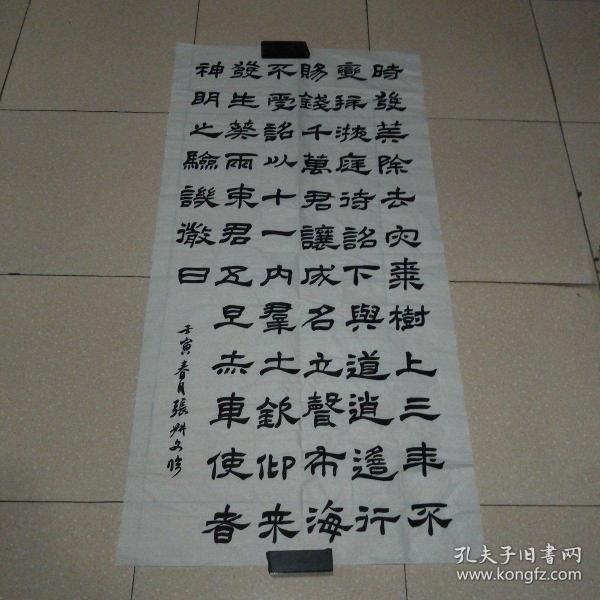 時發筭除去灾棗樹上三年不
變拜掖庭待詔下與道逍遙行
賜錢千萬君讓成名立聲布海
不受詔以十一内羣士欽仰来
發生葵兩束君五旦赤車使者
神明之驗譏徹曰
壬寅春月張文臨
孔夫子旧書网
www.kongfz.com